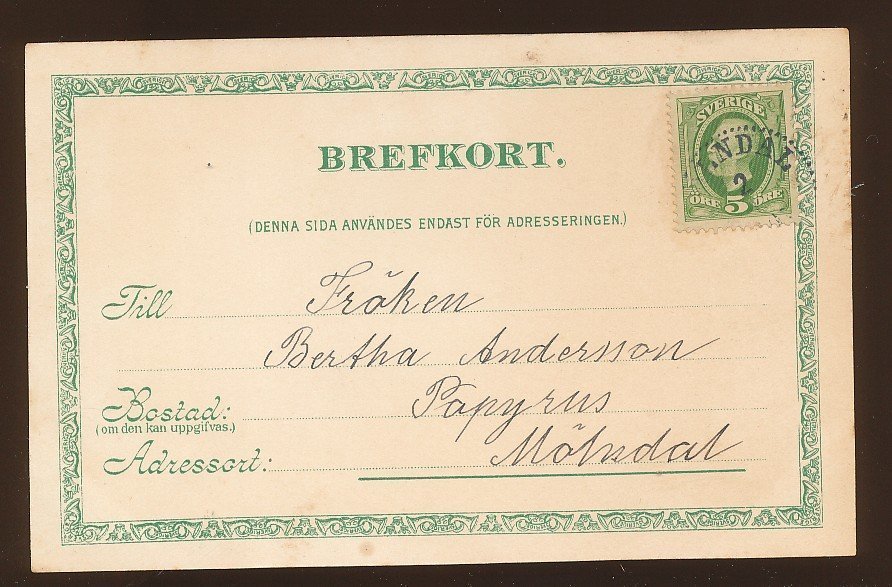 BREFKORT.
SVERIGE
2
ÖRE 5 ÖRE
(DENNA SIDA ANVÄNDES ENDAST FÖR ADRESSERINGEN.)
Till Fröken
Bertha Andersson
Bostad: Papyrus
(om den kan uppgifvas.)
Adressort: Mölndal